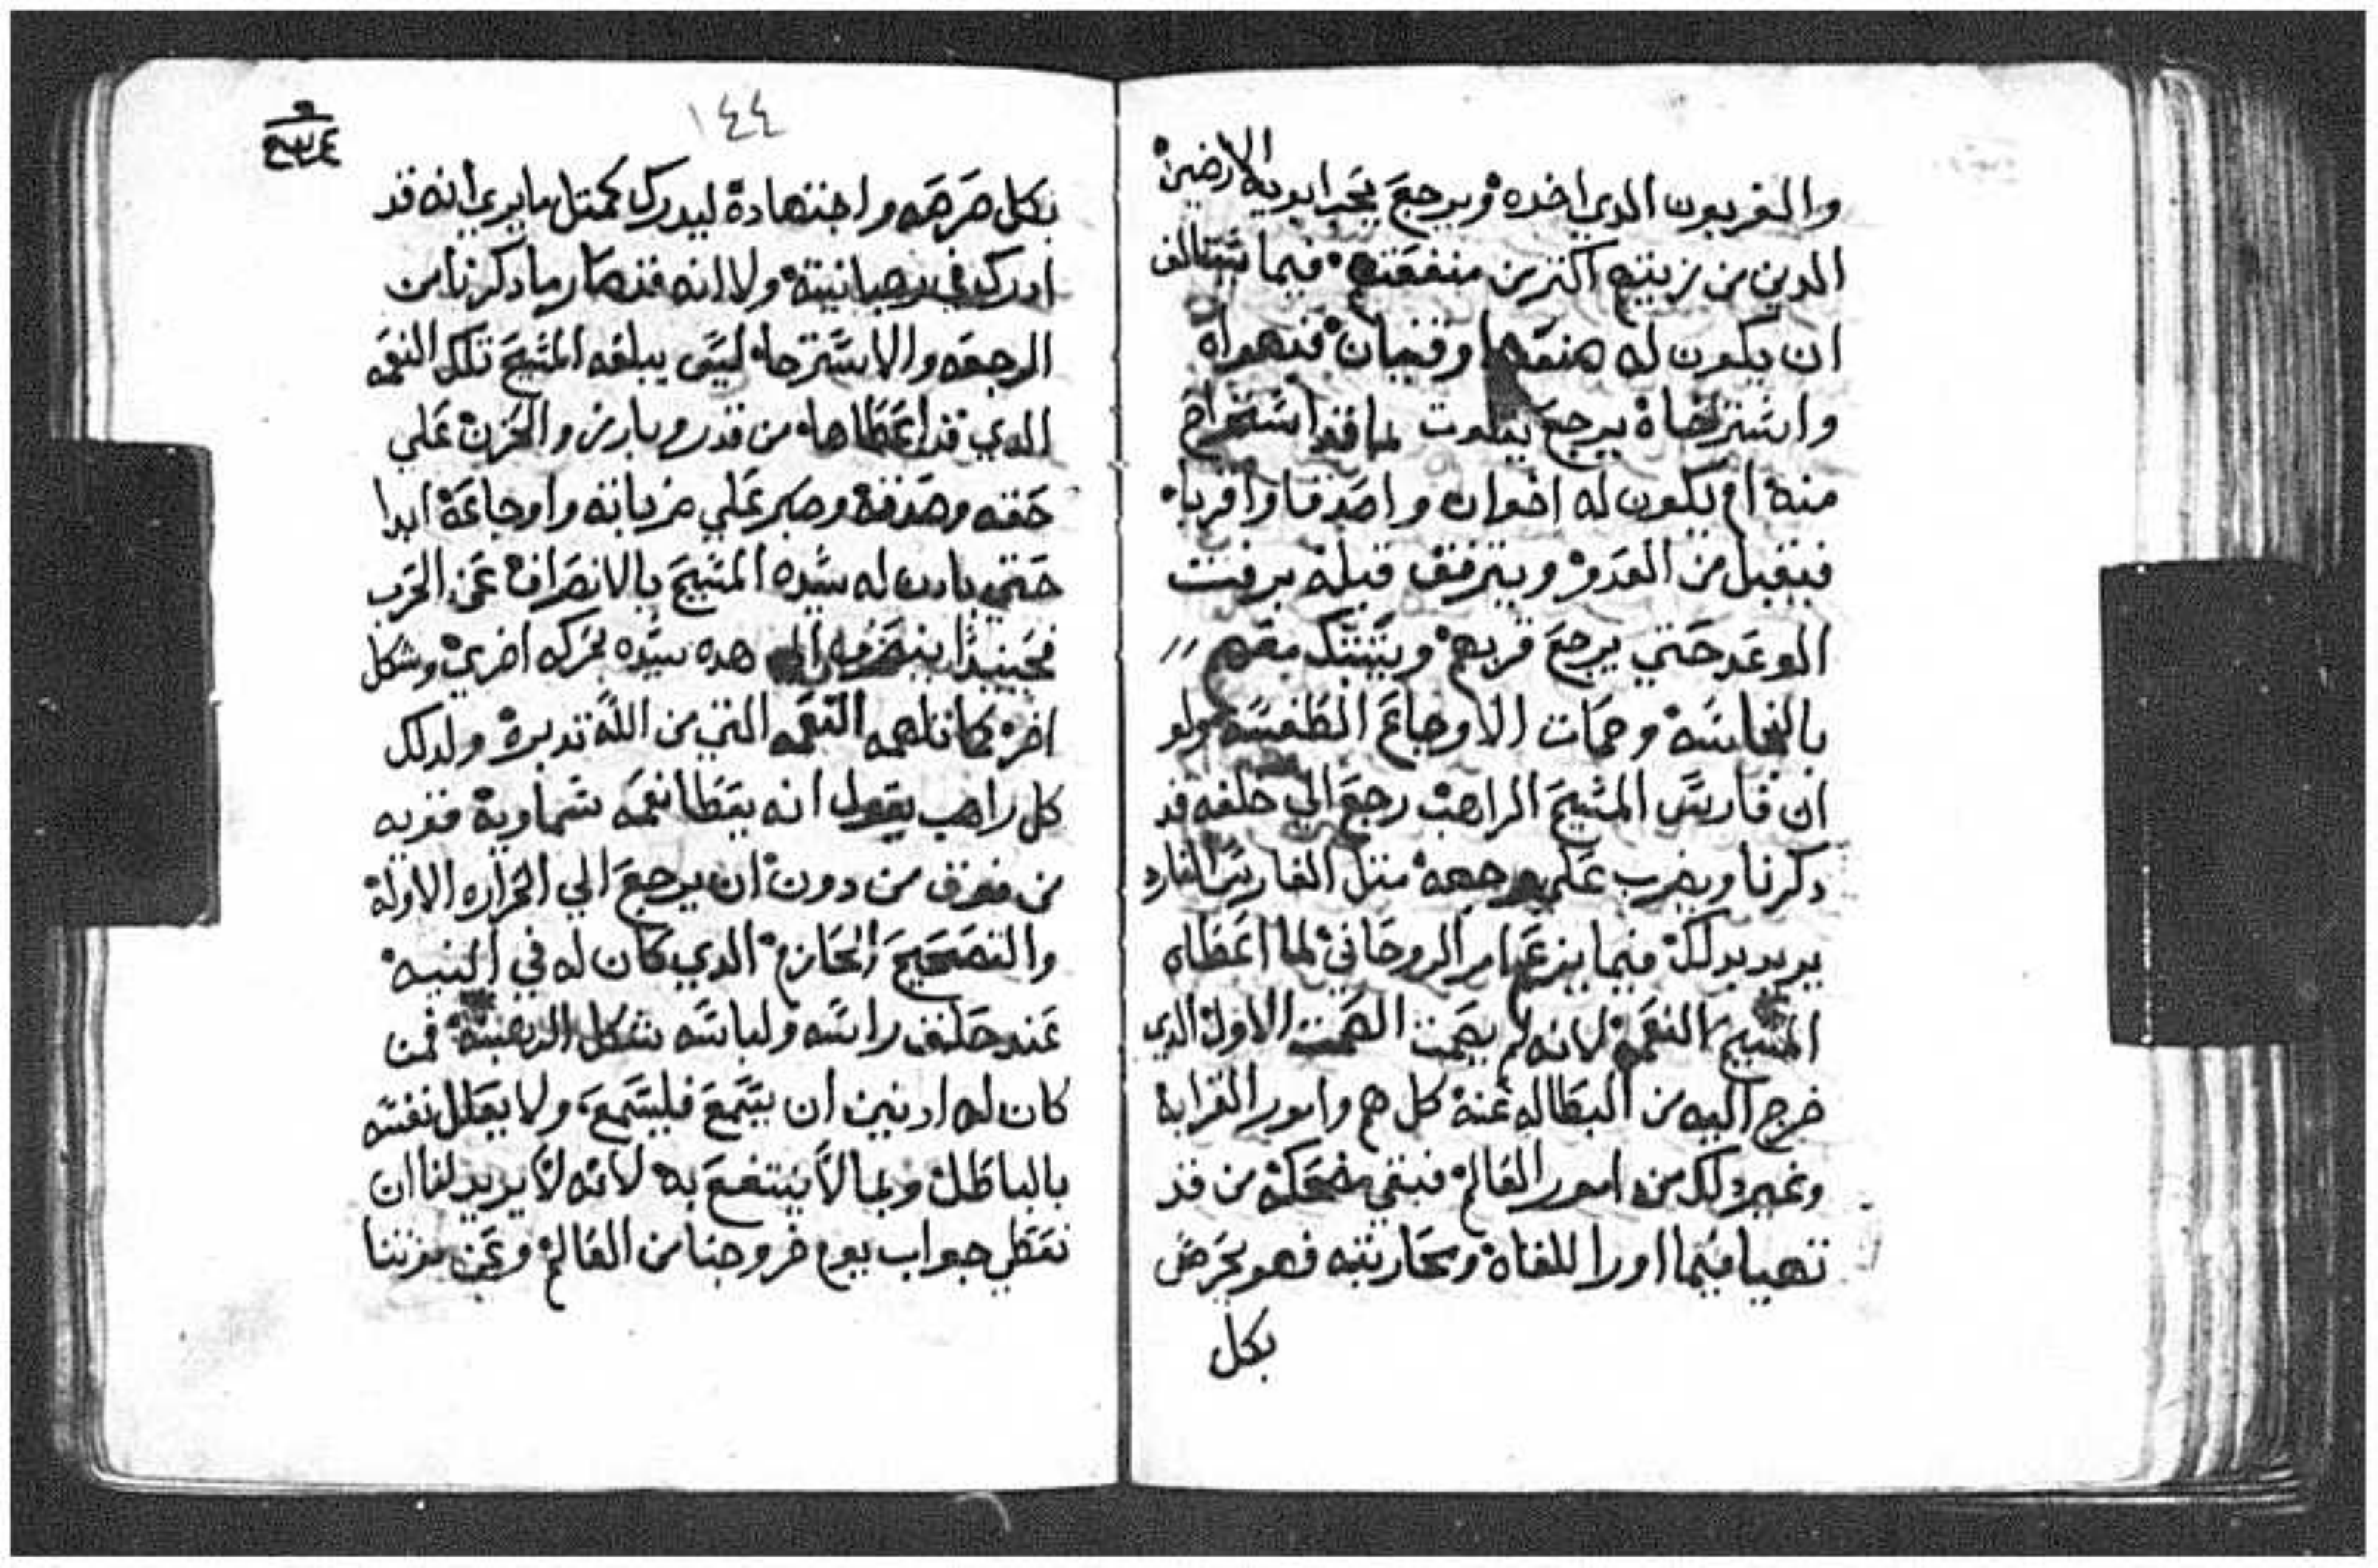 والغربون الدي اخده ويرجع نحو ابويه الارضيين
الدين من زينتهم اكتر من منفعتهم فيما
ان يكون له وقنيان فدهواه
واسترخاه يرجع لما قد استخرج
منه ام يكون له اخوان واصدقا واقربا
فيقبل من العدو ويترفق قبله برفت
الوعد حتي يرجع قربهم ويشتبك معهم
بالنجاسه وحمات الاوجاع الطفسه ولو
ان فارس المسيح الراهب رجع الي خلفه قد
دكرنا ويضرب علي مرجعه متل الفارس الفارد
يريد بدلك فيما يزعم امر الروحاني لما اعطاه
المسيح النعمه لانه لم يصمت الصمت الاول الدي
خرج اليه من البطاله عنه كل هم وامور القرابه
وغير دلك من امور العالم فبقي مضحكه من قد
تهيا فيما اورا للقاه ومحاربته فهو يحرض
بكل
١٤٤
بكل حرصه واجتهاده ليدرك كمتل ما يري انه قد
ادركه في رهبانيته ولا انه قد صار ما دكرنا من
الرجعه والاسترخاه ليس يبلغه المسيح تلك النعمه
الدي قد اعطاها من قدر وبارز والحزن علي
حقه وصدقه وصبر علي ضرباته واوجاعه ابدا
حتي يادن له سيده المسيح بالانصراف عن الحرب
فحينيدا هده سيده بحركه اخري وشكل
اخر كما تلهمه النعمه التي من الله تدبره ولدلك
كل راهب يقول انه يتطا نعمه سماويه قويه
من فوق من دون ان يرجع الي الحراره الاوله
والتصحيح الحازم الدي كان له في النيه
عند حلف راسه ولباسه شكل الرهبنه فمن
كان له ادنين ان يسمع فليسمع ولا يعلل نفسه
بالباطل وبما لا ينتفع به لانه لا يريد لنا ان
نعطي جواب يوم خروجنا من العالم وعن